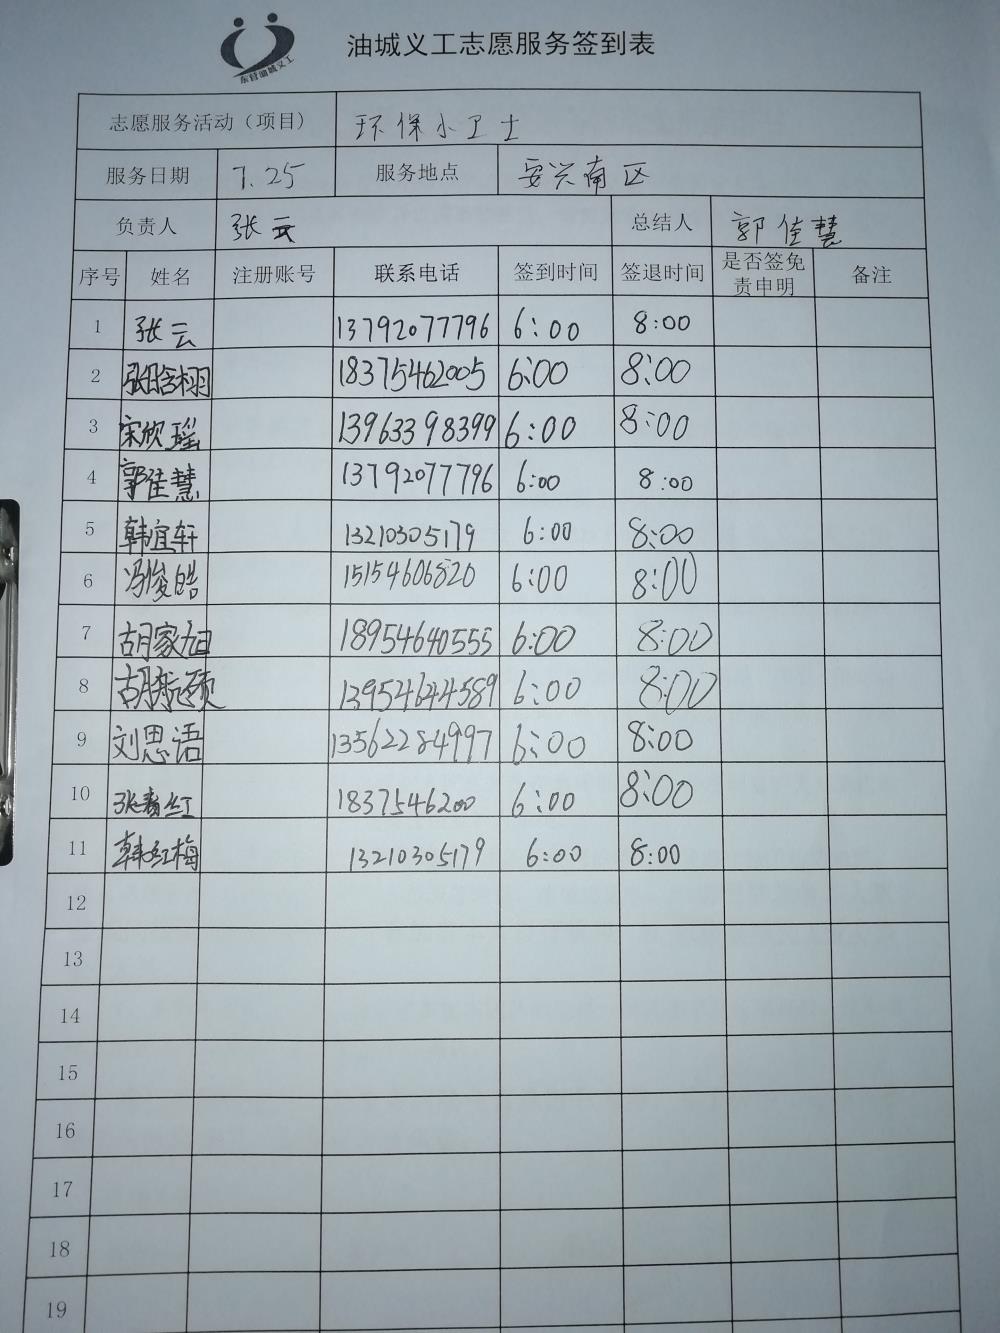 东营油城义工
油城义工志愿服务签到表
志愿服务活动（项目） 环保小卫士
服务日期 7.25 服务地点 安兴南区
负责人 张云 总结人 郭佳慧
序号 姓名 注册账号 联系电话 签到时间 签退时间 是否签免责申明 备注
1 张云 13792077796 6:00 8:00
2 张晗栩 18375462005 6:00 8:00
3 宋欣瑶 13963398399 6:00 8:00
4 郭佳慧 13792077796 6:00 8:00
5 韩宜轩 13210305179 6:00 8:00
6 冯俊皓 15154606820 6:00 8:00
7 胡家旭 18954640555 6:00 8:00
8 13954644589 6:00 8:00
9 刘思语 13562284997 6:00 8:00
10 张春红 1837546200 6:00 8:00
11 韩红梅 13210305179 6:00 8:00
12
13
14
15
16
17
18
19